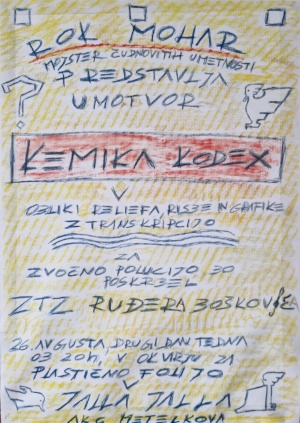 ROK MOHAR
MOJSTER ČUDNOVITIH UMETNOSTI
PREDSTAVLJA
UMOTVOR
KEMIKA KODEX
V
OBLIKI RELIEFA, RISBE IN GRAFIKE
Z TRANSKRIPCIJO
ZA
ZVOČNO POLUCIJO BO
POSKRBEL
ZTZ RUĐERA BOŠKOV
26. AVGUSTA, DRUGI DAN TEDNA
OB 20h, V OKVIRJU ZA
PLASTIČNO FOLIJO
V
JALLA JALLA
AKC METELKOVA